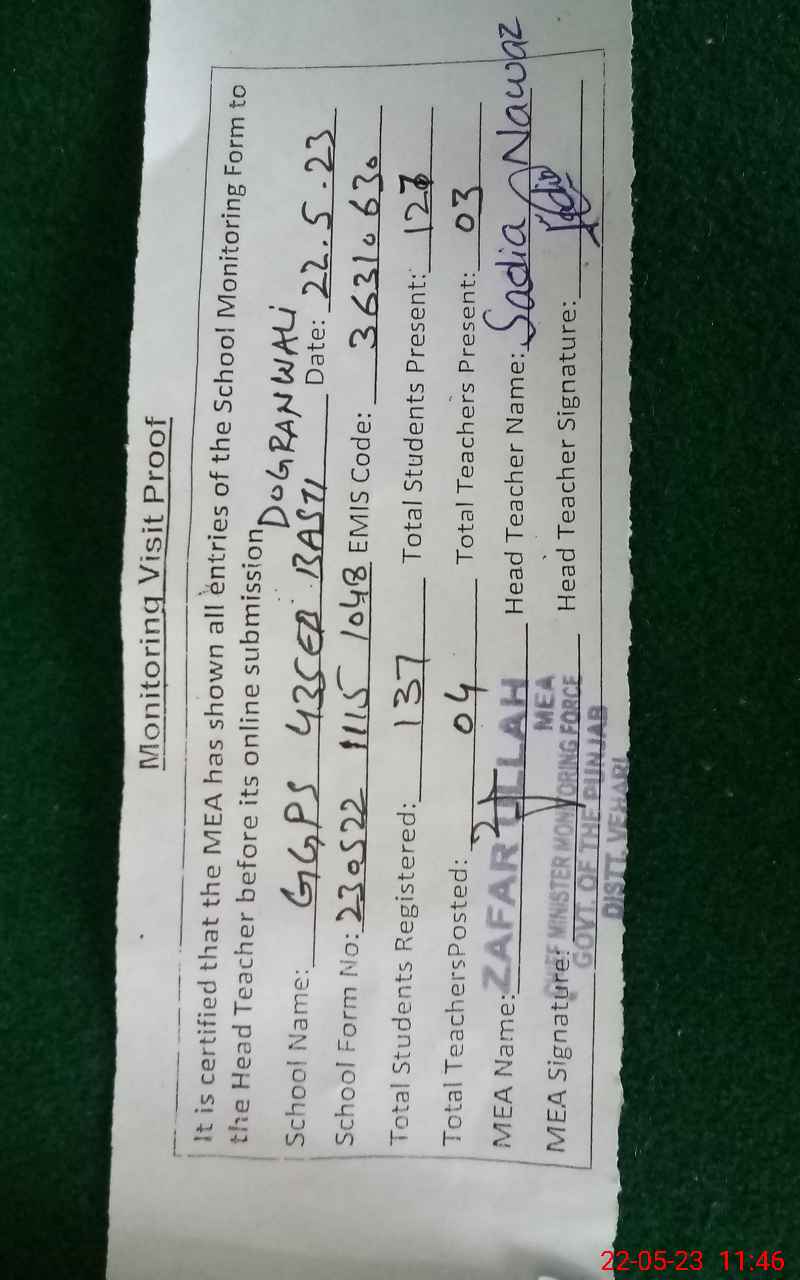 Monitoring Visit Proof
It is certified that the MEA has shown all entries of the School Monitoring Form to
the Head Teacher before its online submission
DOGRANWALI
School Name: GGPS 435EB BASTI Date: 22.5.23
School Form No: 230522 1115 1048 EMIS Code: 36310630
Total Students Registered: 137 Total Students Present: 127
Total TeachersPosted: 04 Total Teachers Present: 03
MEA Name: ZAFAR ULLAH Head Teacher Name: Sadia Nawaz
MEA Signature: Head Teacher Signature: Sadia
MEA
CHIEF MINISTER MONITORING FORCE
GOVT. OF THE PUNJAB
DISTT. VEHARI
22-05-23 11:46